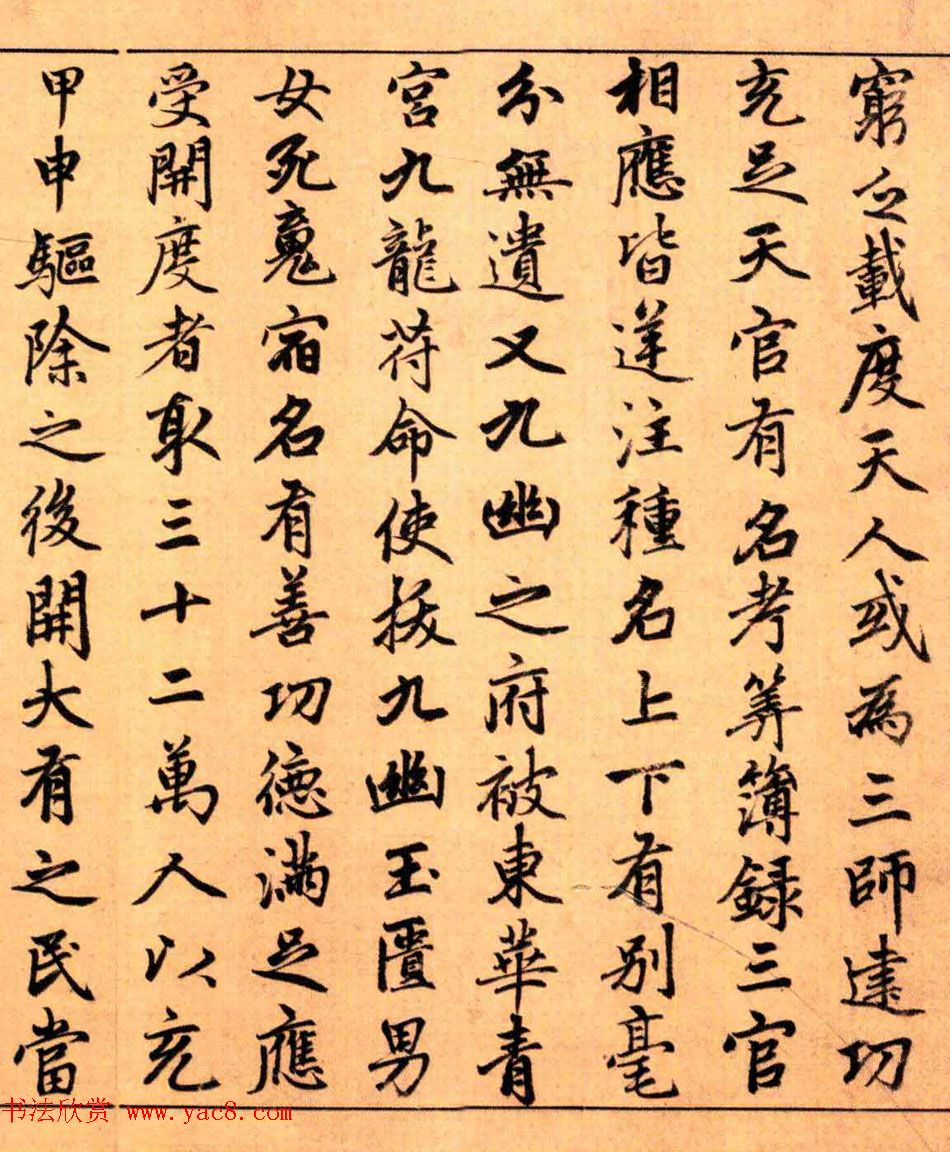 窮之載度天人或為三師建功
充足天官有名名考筭簿録三官
相應皆逆注種名上下有別毫
分無遺又九幽之府被東華青
宮九龍符命使拔九幽玉匱男
女死魂宿名有善功德滿足應
受開度者取三十二萬人以充
甲申驅除之後開大有之民當
书法欣赏 www.yac8.com